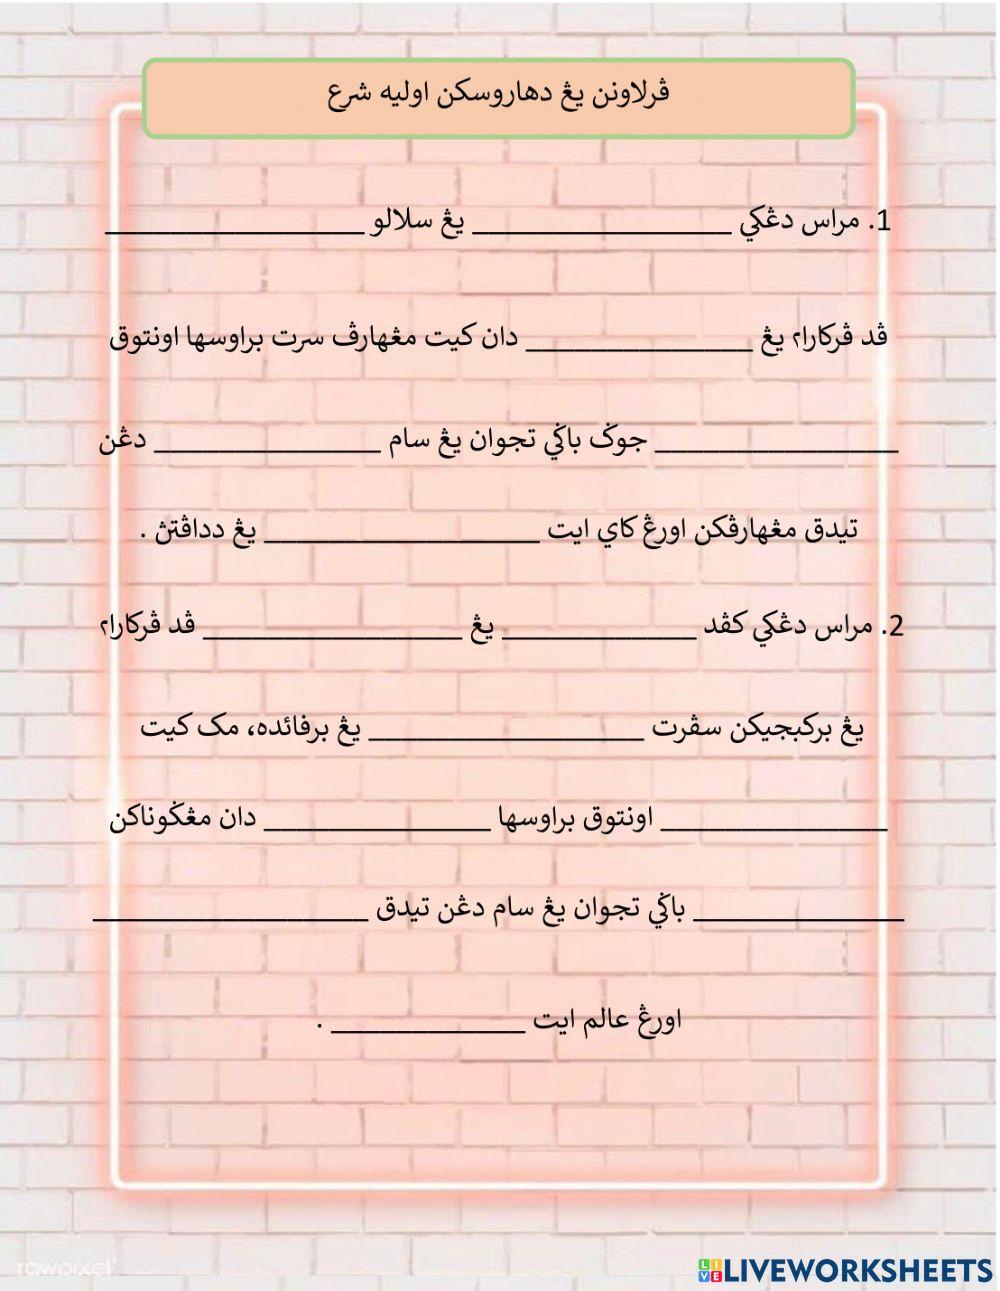 ڤرلاونن يڠ دهاروسكن اوليه شرع
1. مراس دڠكي ________________ يڠ سلالو ________________
ڤد ڤركارا٢ يڠ ______________ دان كيت مڠهارڤ سرت براوسها اونتوق
_______________ جوݢ باݢي تجوان يڠ سام ______________ دڠن
تيدق مڠهارڤكن اورڠ كاي ايت _________________ يڠ دداڤتڽ .
2. مراس دڠكي كڤد ____________ يڠ ________________ ڤد ڤركارا٢
يڠ بركبجيكن سڤرت _________________ يڠ برفائده، مک كيت
______________ اونتوق براوسها ______________ دان مڠݢوناكن
_____________ باݢي تجوان يڠ سام دڠن تيدق _________________
اورڠ عالم ايت ____________ .
rawpixel
LIVEWORKSHEETS